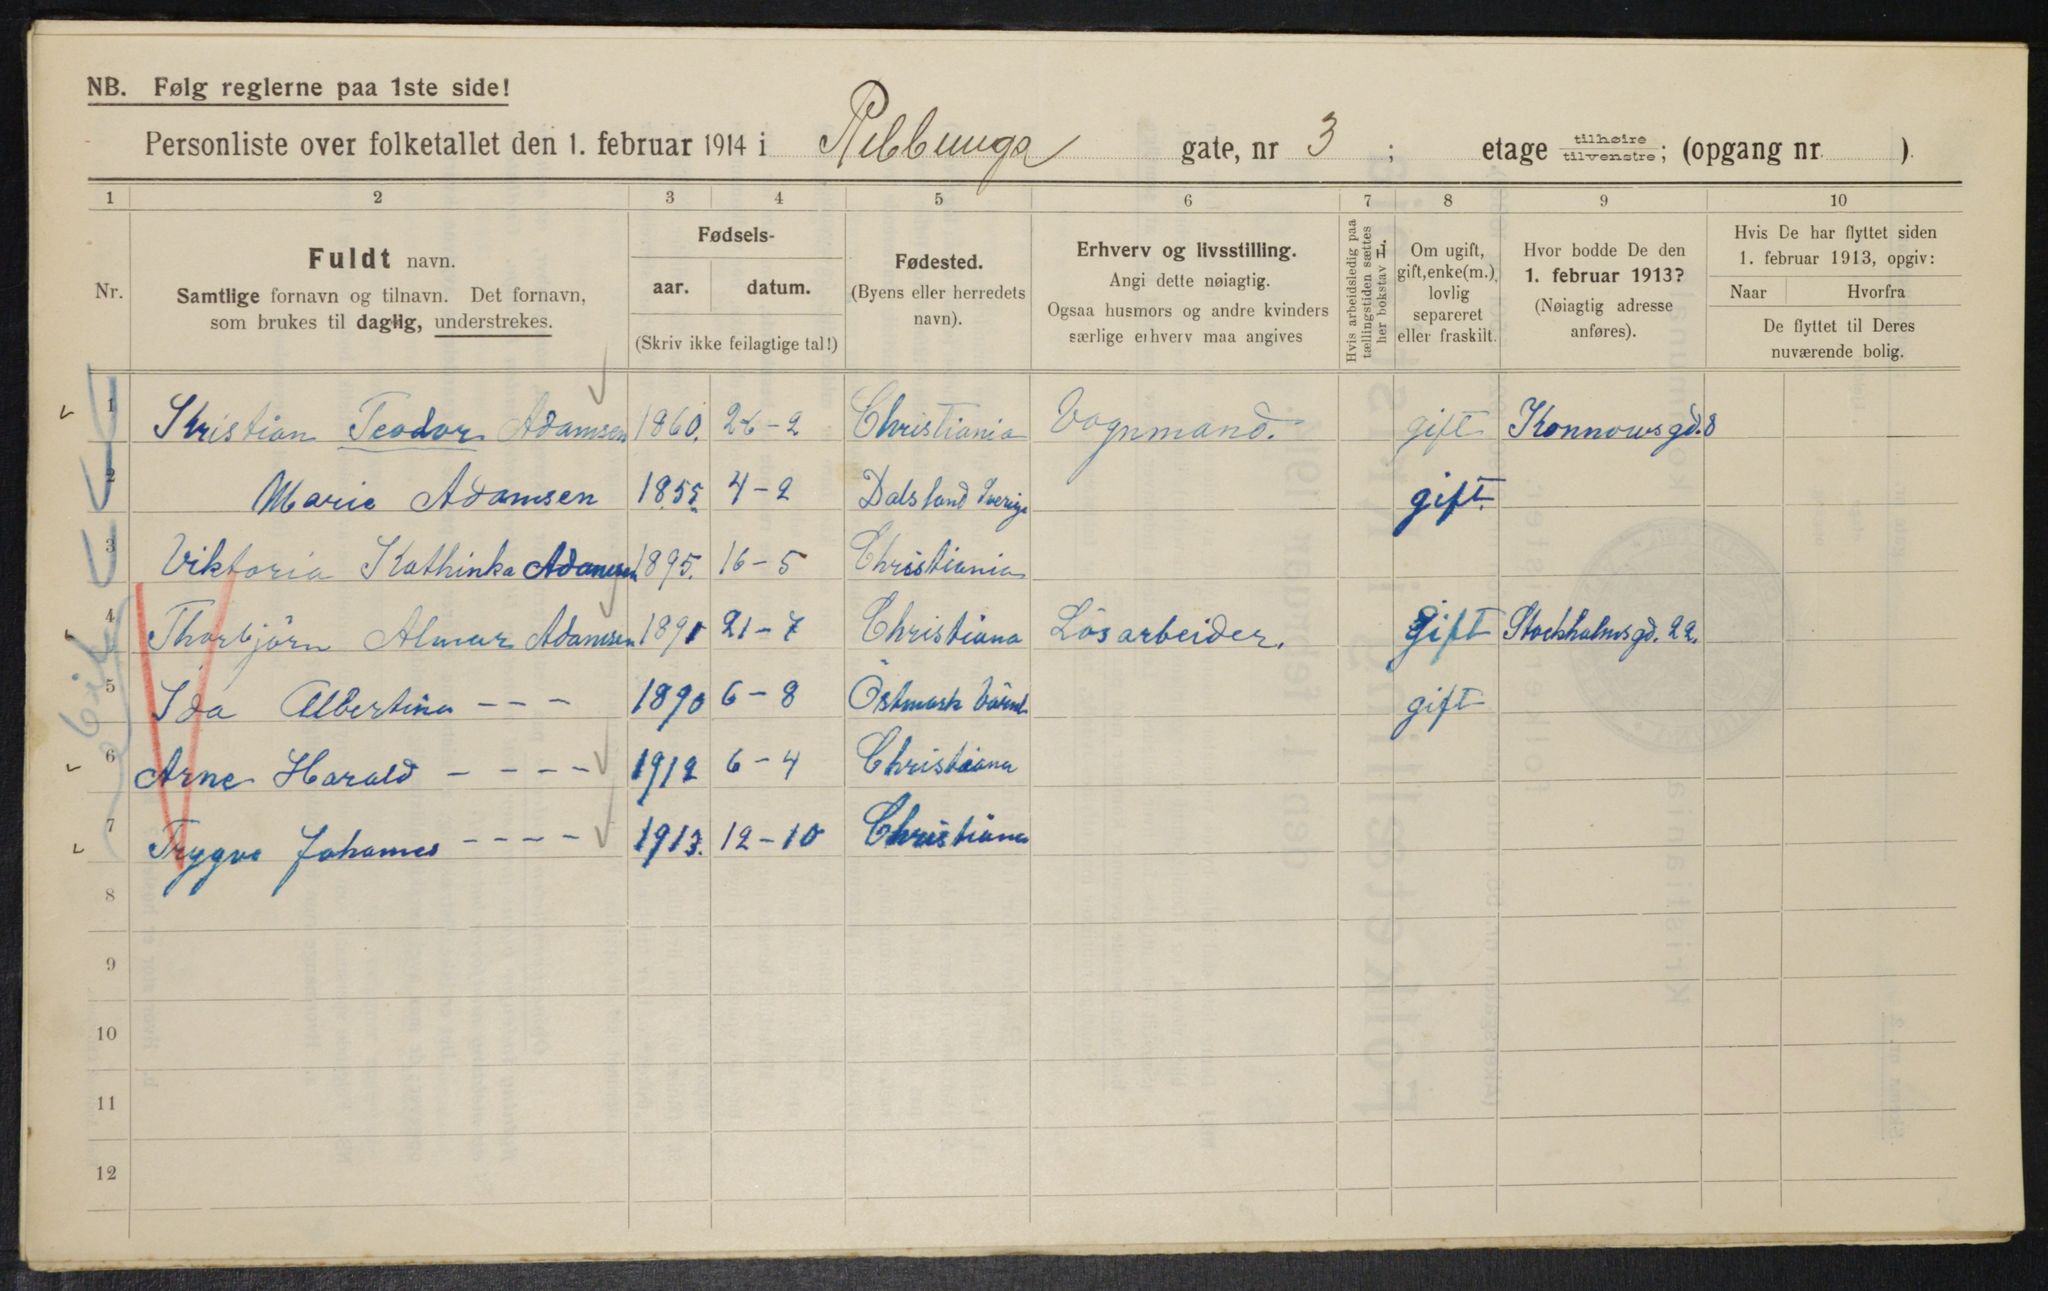 NB. Følg reglerne paa 1ste side!
Personliste over folketallet den 1. februar 1914 i Ribbunga gate, nr 3; etage tilhøire tilvenstre; (opgang nr. ).
1 2 3 4 5 6 7 8 9 10
Nr.
Fuldt navn.
Samtlige fornavn og tilnavn. Det fornavn,
som brukes til daglig, understrekes.
Fødsels-
aar. datum.
(Skriv ikke feilagtige tal!)
Fødested.
(Byens eller herredets
navn).
Erhverv og livsstilling.
Angi dette nøiagtig.
Ogsaa husmors og andre kvinders
særlige erhverv maa angives
Hvis arbeidsledig paa
tællingstiden sættes
her bokstav L.
Om ugift,
gift, enke(m.),
lovlig
separeret
eller fraskilt.
Hvor bodde De den
1. februar 1913?
(Nøiagtig adresse
anføres).
Hvis De har flyttet siden
1. februar 1913, opgiv:
Naar Hvorfra
De flyttet til Deres
nuværende bolig.
1 Kristian Teodor Adamsen 1860. 26-2 Christiania Vognmand. gift Konnowsgd. 8
2 Marie Adamsen 1855 4-2 Dalsland Sverige gift.
3 Viktoria Kathinka Adamsen 1895. 16-5 Christiania
4 Thorbjörn Almar Adamsen 1891 21-7 Christiana Lösarbeider. gift Stockholmsgd. 22.
5 Ida Albertina - - - 1890 6-8 Östmark Värml. gift
6 Arne Harald - - - - 1912 6-4 Christiana
7 Trygve Johannes - - - - 1913. 12-10 Christiana
8
9
10
11
12